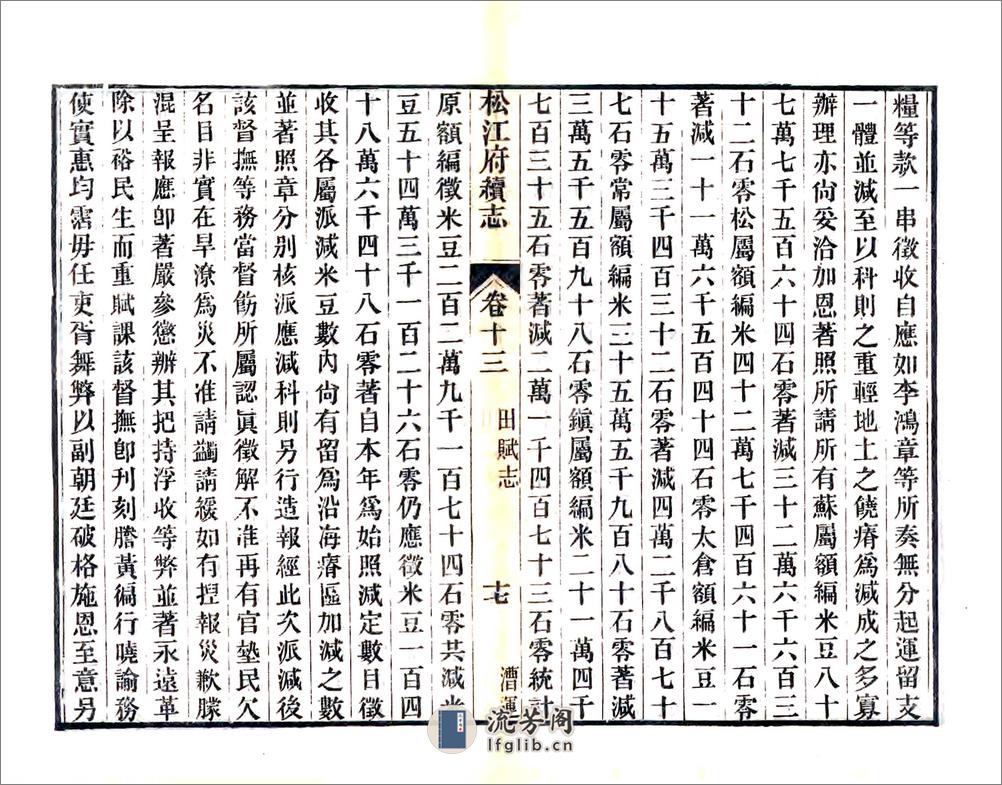 糧等款一串徵收自應如李鴻章等所奏無分起運留支
一體並減至以科則之重輕地土之饒瘠爲減成之多寡
辦理亦尙妥洽加恩著照所請所有蘇屬額編米豆八十
七萬七千五百六十四石零著減三十二萬六千六百三
十二石零松屬額編米四十二萬七千四百六十一石零
著減一十一萬六千五百四十四石零太倉額編米豆一
十五萬三千四百三十二石零著減四萬二千八百七十
七石零常屬額編米三十五萬五千九百八十石零著減
三萬五千五百九十八石零鎭屬額編米二十一萬四千
七百三十五石零著減二萬一千四百七十三石零統計
松江府續志 卷十三 田賦志 十七 漕運
原額編徵米豆二百二萬九千一百七十四石零共減米
豆五十四萬三千一百二十六石零仍應徵米豆一百四
十八萬六千四十八石零著自本年爲始照減定數目徵
收其各屬派減米豆數內尙有留爲沿海瘠區加減之數
並著照章分別核派應減科則另行造報經此次派減後
該督撫等務當督飭所屬認眞徵解不准再有官墊民欠
名目非實在旱潦爲災不准請蠲請緩如有揑報災歉朦
混呈報應卽著嚴參懲辦其把持浮收等弊並著永遠革
除以裕民生而重賦課該督撫卽刋刻謄黃徧行曉諭務
使實惠均霑毋任吏胥舞弊以副朝廷破格施恩至意另
流芳阁
lfglib.cn